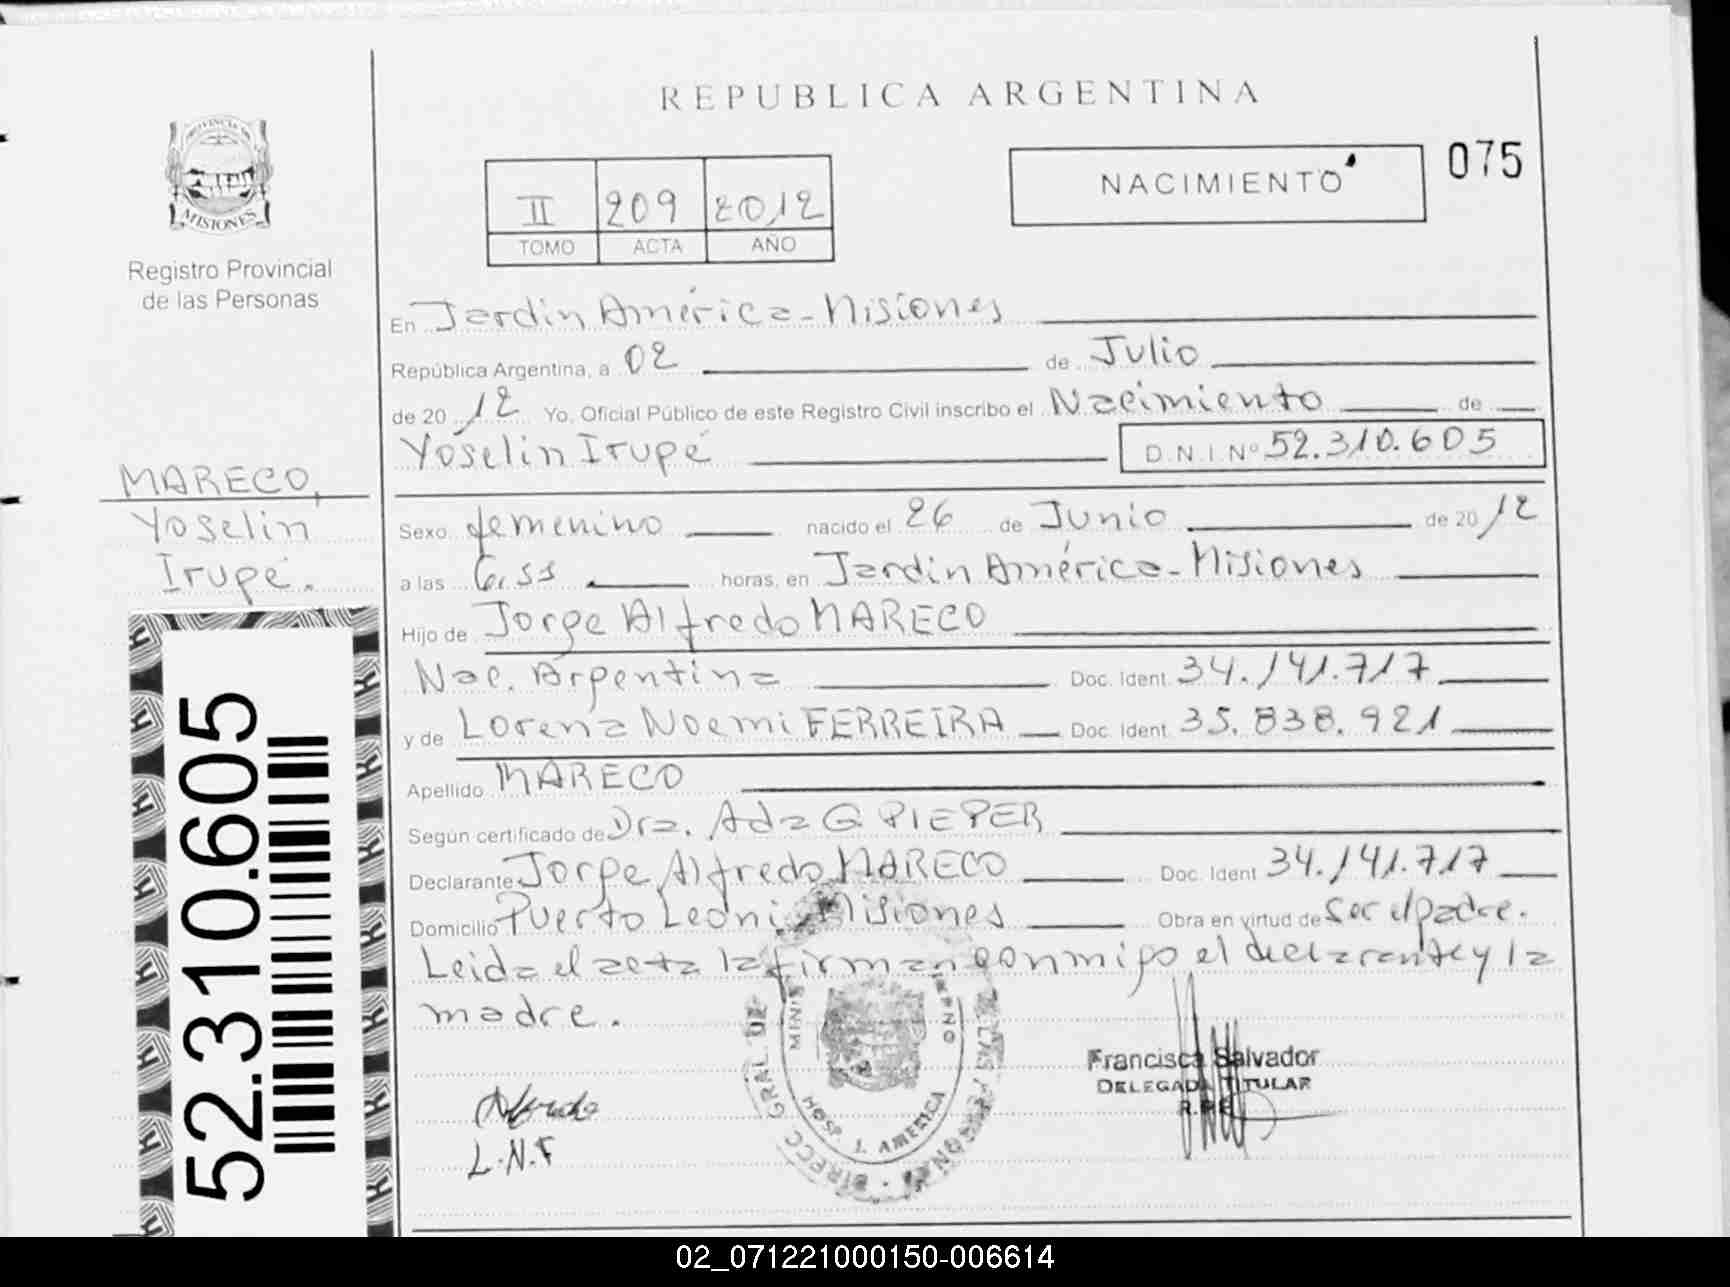 REPUBLICA ARGENTINA
PROVINCIA DE
MISIONES
Registro Provincial
de las Personas
II 209 2012
TOMO ACTA AÑO
NACIMIENTO
075
En Jardín América - Misiones
República Argentina, a 02 de Julio
de 20 12 Yo, Oficial Público de este Registro Civil inscribo el Nacimiento de
Yoselin Irupé D.N.I Nº 52.310.605
MARECO,
Yoselin
Irupé.
Sexo femenino nacido el 26 de Junio de 20 12
a las 6,55 horas, en Jardín América - Misiones
Hijo de Jorge Alfredo MARECO
Nac. Argentina Doc. Ident. 34.141.717
y de Lorena Noemi FERREIRA Doc. Ident. 35.838.921
Apellido MARECO
Según certificado de Dra. Ada G PIEPER
Declarante Jorge Alfredo MARECO Doc. Ident 34.141.717
Domicilio Puerto Leoni, Misiones Obra en virtud de Ser el padre.
Leida el acta la firman conmigo el declarante y la
madre.
52.310.605
DIRECC. GRAL. DE LAS PERSONAS
MINIS
HOSP. J. AMERICA
Francisca Salvador
DELEGADA TITULAR
R.P.P.
Alfredo
L.N.F
02_071221000150-006614